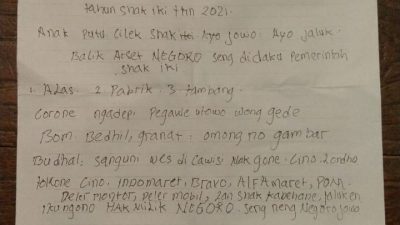 tahun shak iki thn 2021.
Anak Putu Cilek Shak Hoi. Ayo Jowo. Ayo Jaluk.
Balik Arset NEGORO seng didaku Pemerintah
shak iki
1. Alas. 2 Pabrik. 3 tambang.
Corone ngadepi Pegawe utowo wong gede
Bom. Bedhil, granat. omong no gambar
Budhal, sanguni wes di cawisi Nak gone. Cino, Londho
tokone Cino. Indomaret, Bravo, AlFAmaret, POM.
Deler Montor, Deler mobil, Lan Shak Kabehane, Jaluk en
ikungono HAK MILIK NEGORO. Seng neng Negoro Jowo